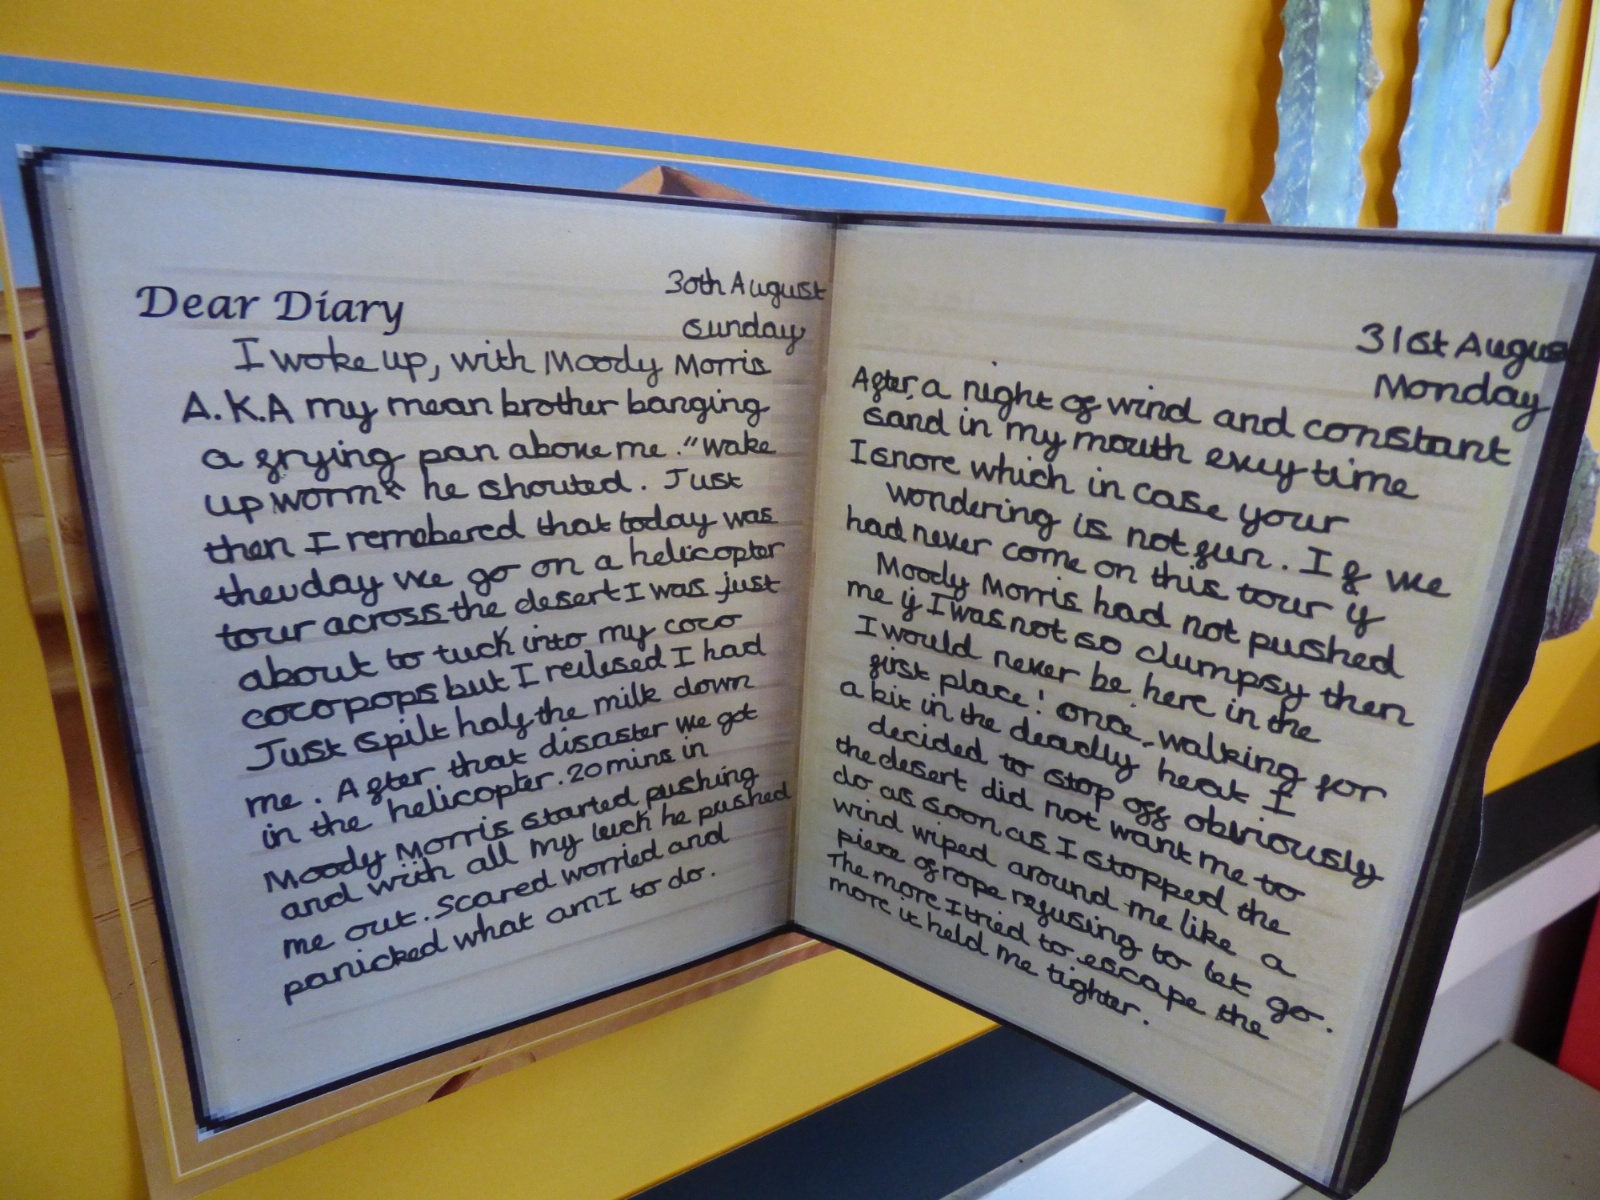 Dear Diary
30th August
Sunday
I woke up, with Moody Morris
A.K.A my mean brother banging
a frying pan above me. "wake
up worm" he shouted. Just
then I remebered that today was
the day we go on a helicopter
tour across the desert I was just
about to tuck into my coco
coco pops but I reilesed I had
Just spilt half the milk down
me. After that disaster we got
in the helicopter. 20 mins in
Moody Morris started pushing
and with all my luck he pushed
me out. Scared worried and
panicked what am I to do.
31st August
Monday
After, a night of wind and constant
sand in my mouth every time
I snore which in case your
wondering is not fun. If we
had never come on this tour if
Moody Morris had not pushed
me if I was not so clumpsy then
I would never be here in the
first place! once, walking for
a bit in the deadly heat I
decided to stop off obviously
the desert did not want me to
do as soon as I stopped the
wind wiped around me like a
piece of rope refusing to let go.
The more I tried to escape the
more it held me tighter.